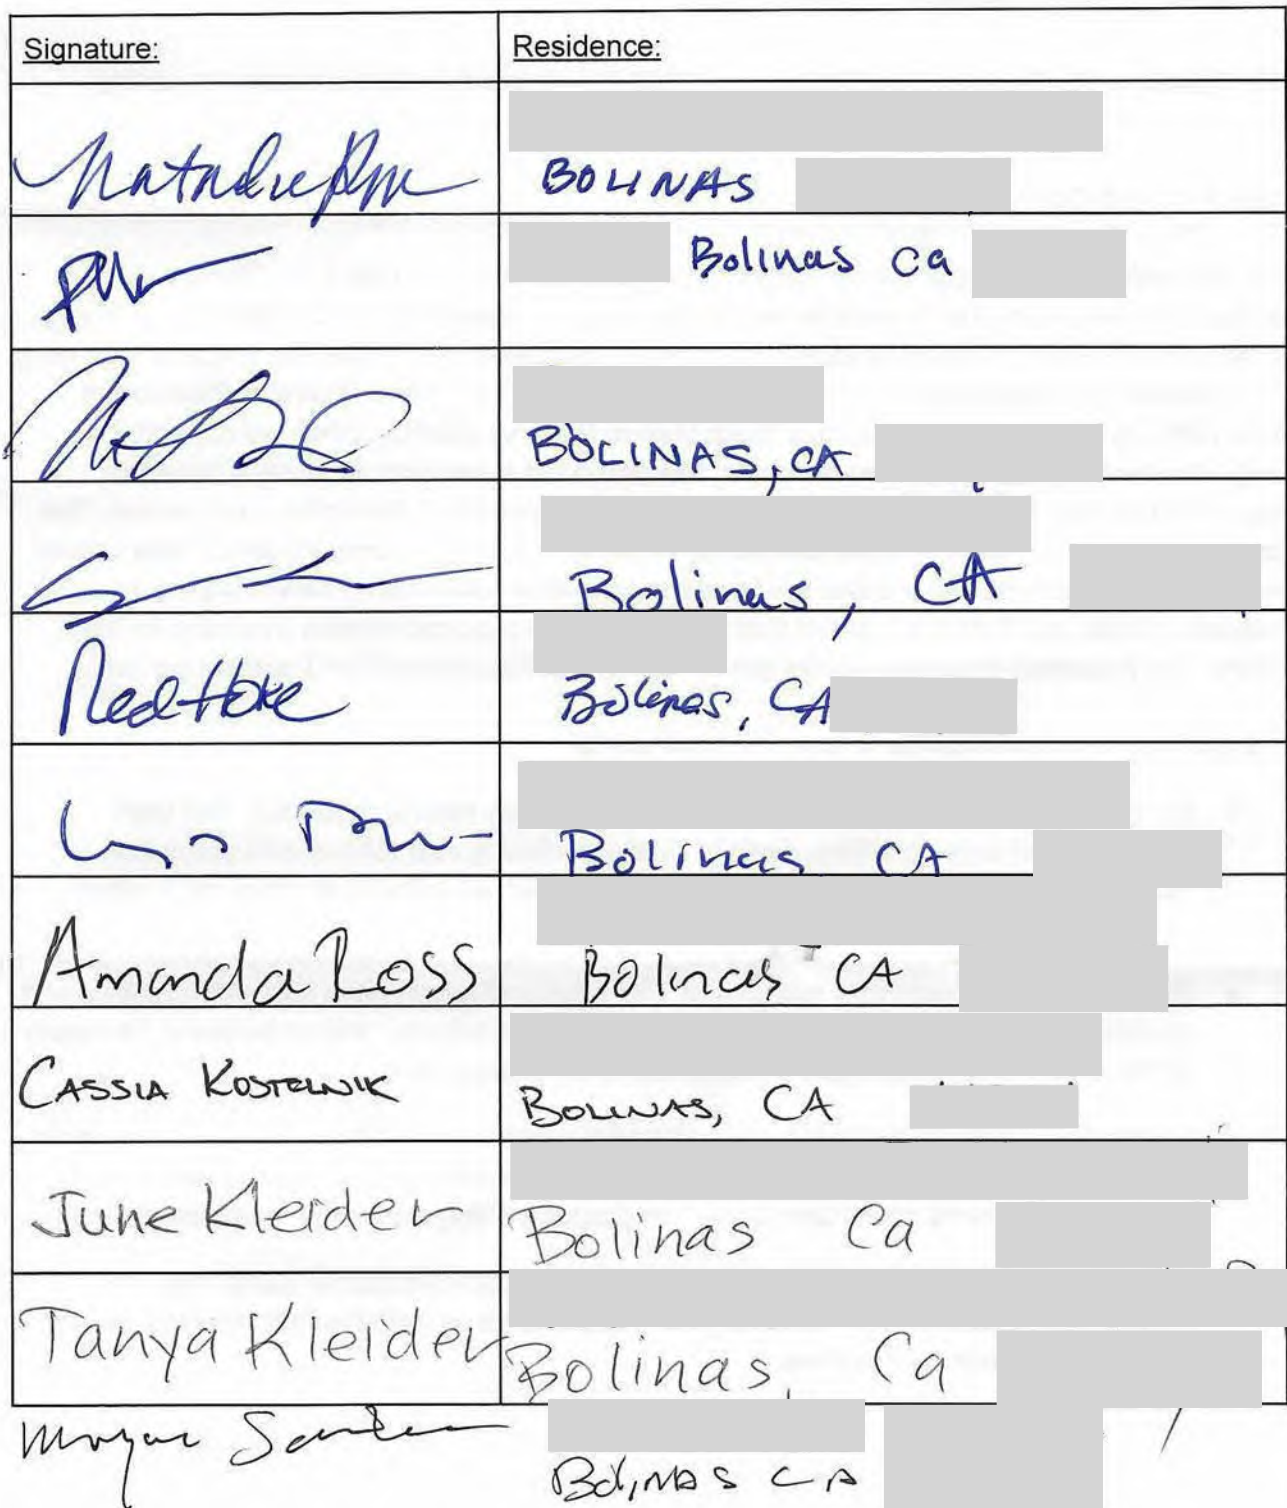 Signature: Residence:
Natalie
BOLINAS
Bolinas Ca
BOLINAS, CA
Bolinas, CA
Bolinas, CA
Bolinas CA
Amanda Ross Bolinas CA
CASSIA KOSTELNIK
BOLINAS, CA
June Kleider Bolinas Ca
Tanya Kleider Bolinas, Ca
Bolinas CA